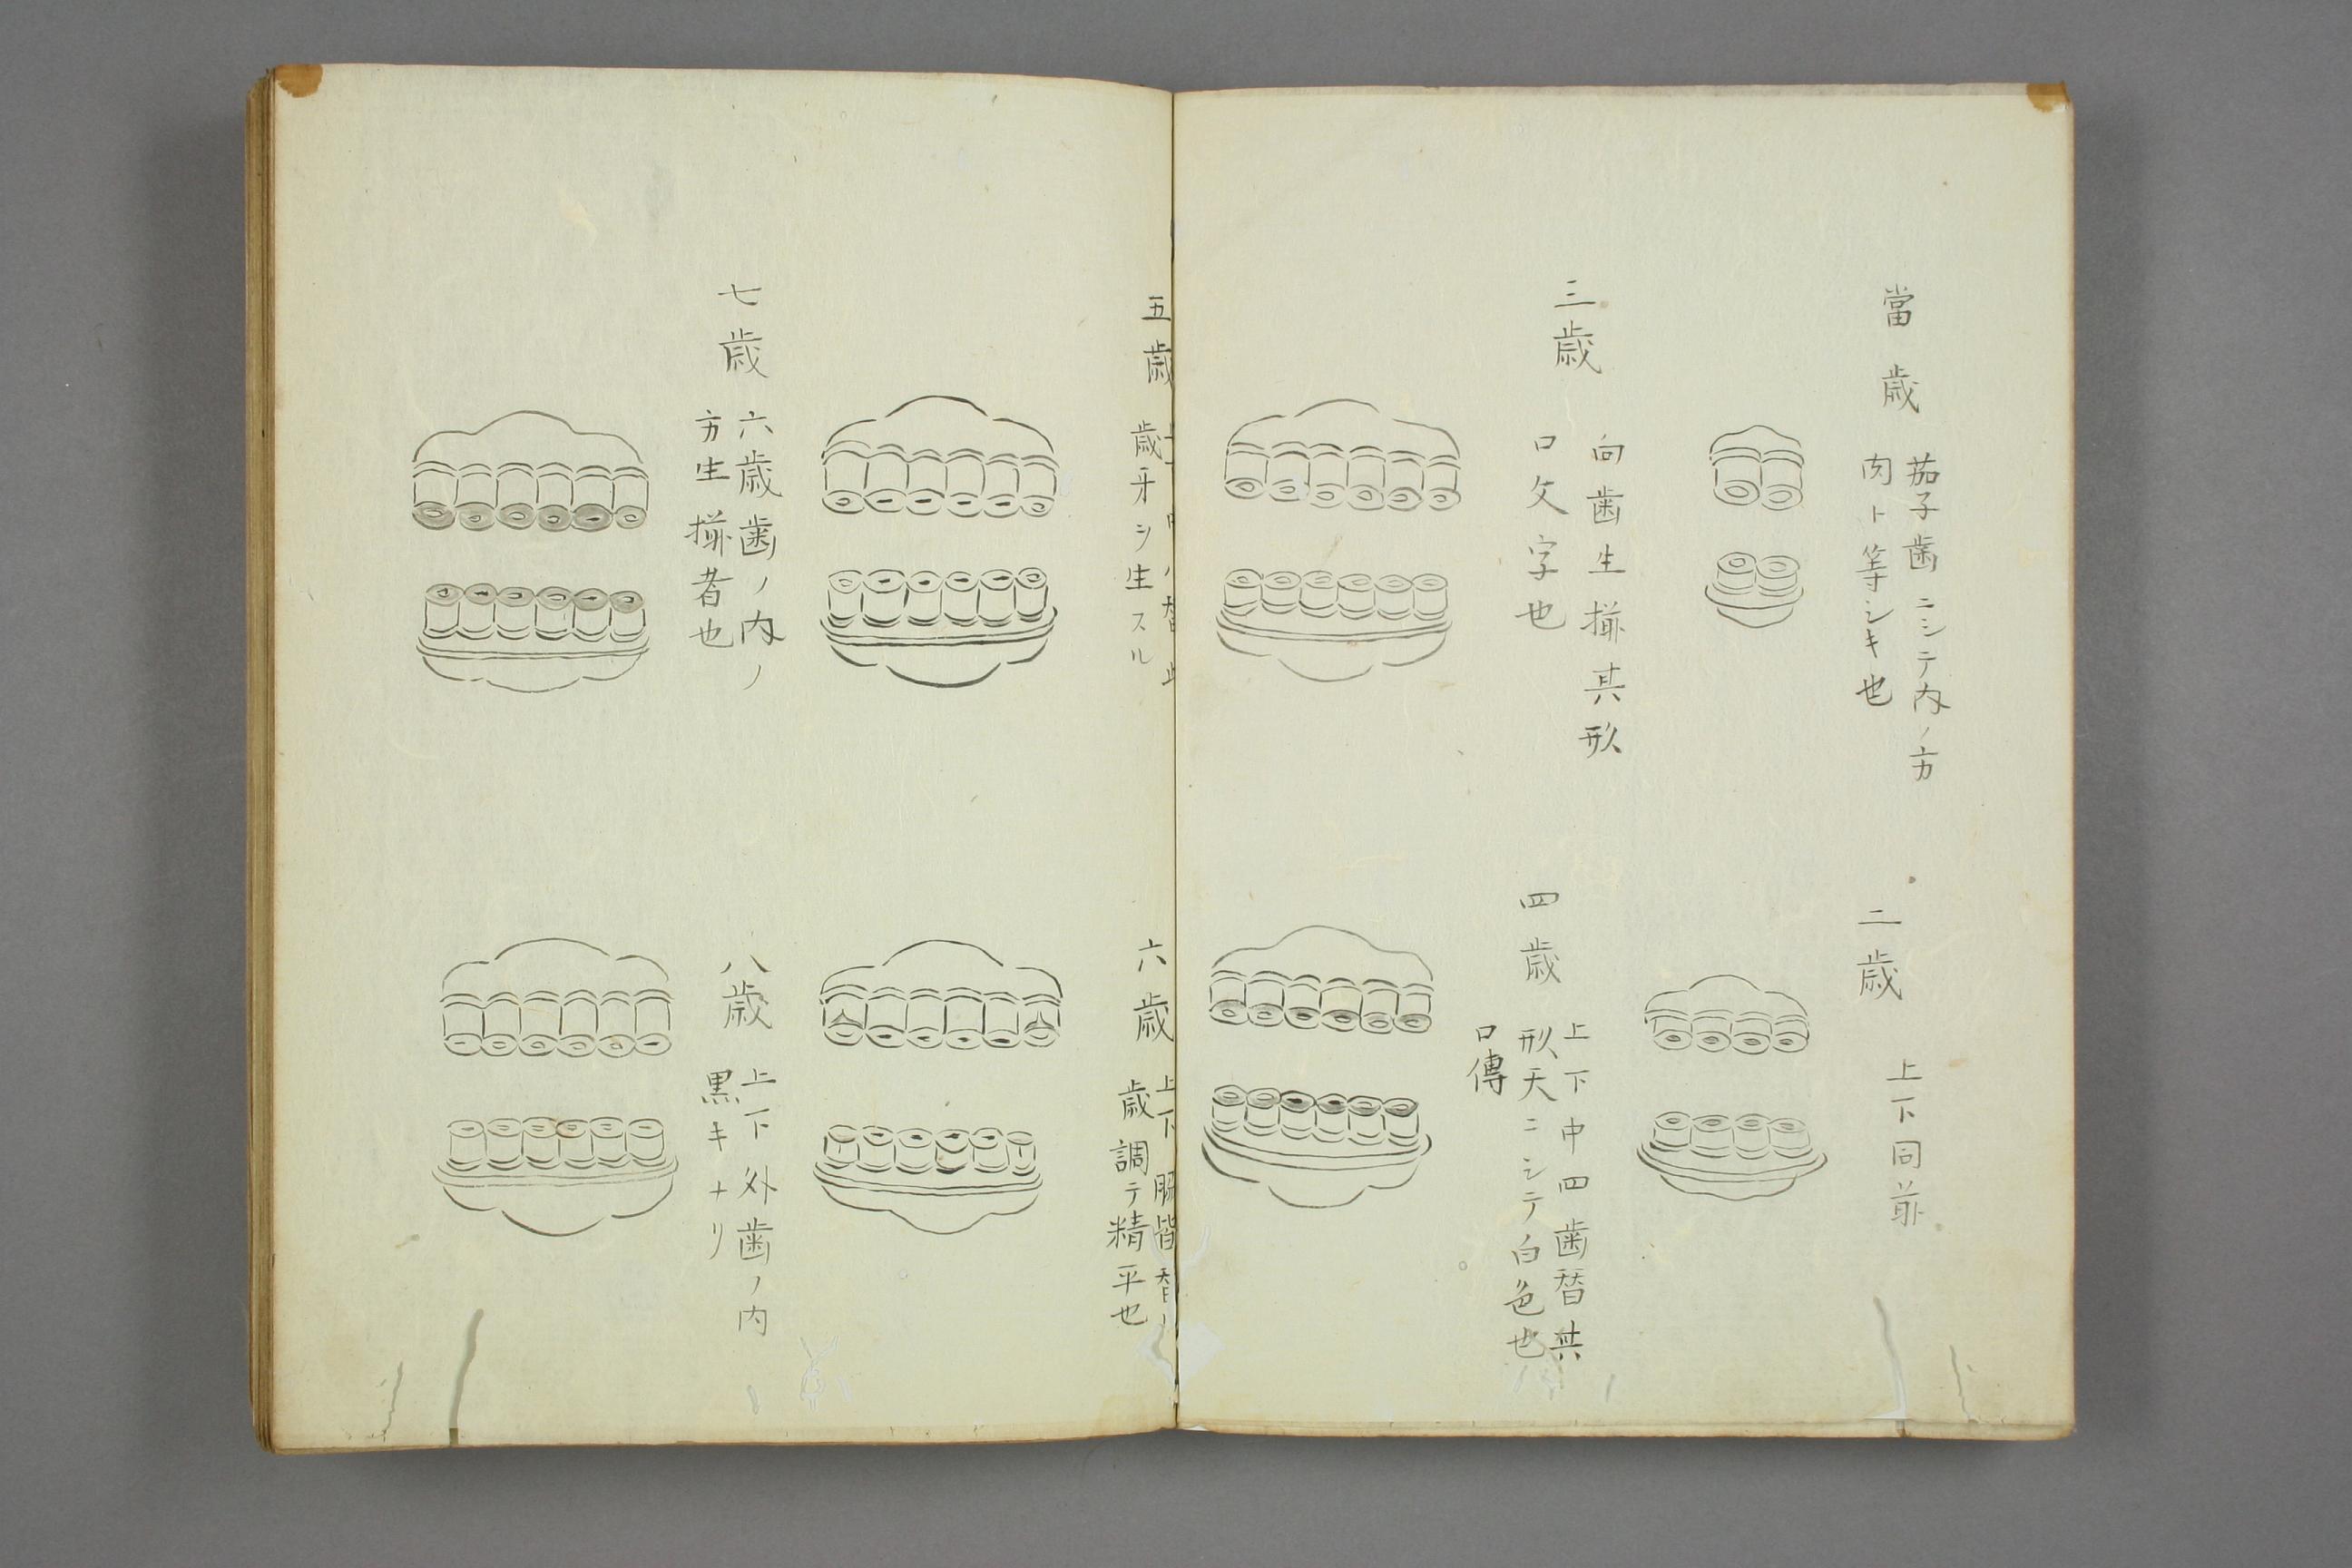 當歳
茄子歯ニシテ内ノ方
肉ト等シキ也
二歳
上下同前
三歳
向歯生揃其形
口文字也
四歳
上下中四歯替其
形天ニシテ白色也
口傳
五歳
歳牙ヲ生スル
六歳
上下 皆替
歳調テ精平也
七歳
六歳歯ノ内ノ
方生揃者也
八歳
上下外歯ノ内
黒キナリ